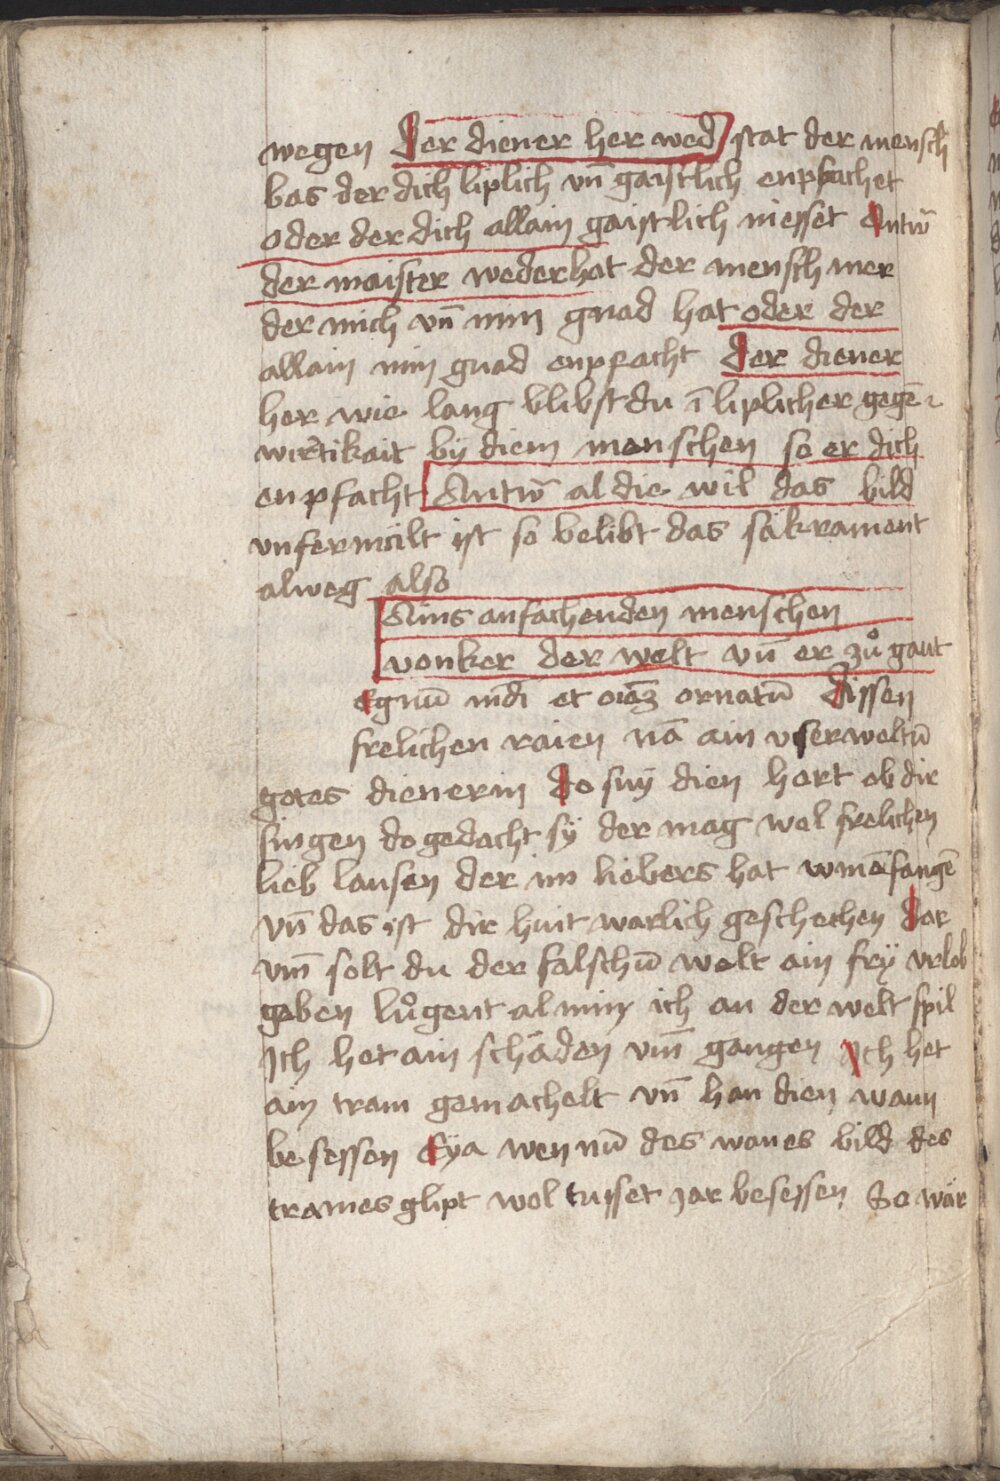 wegen Der diener her wed stat der mensch
bas der dich liplich vn̄ gaistlich enpfachet
oder der dich allain gaistlich niesset Antw̄
der maister wederhat der mensch mer
der mich vn̄ min gnad hat oder der
allain min gnad enpfacht Der diener
her wie lang blibst du ī liplicher gegē
wirtikait by diem menschen so er dich
enpfacht Antw̄ al die wil das bild
vnfermāilt ist so belibt das sakrament
alweg also
Ains anfachenden menschen
vonker der welt vn̄ er zů gaut
egnū mdī et oīez ornatū Dissen
frelichen raien nā ain vserweltū
gotes dienerin do suÿ dien hort ob dir
singen do gedacht sÿ der mag wol frelichen
lieb lausen der im liebers hat vmēfangē
vn̄ das ist dir huit warlich geschechen Dar
vm̄ solt du der falschū welt ain frÿ vrlob
geben lůgent al miny ich an der welt spil
Ich het ain schāden vm̄ gangen Ich het
ain tram gemachelt vn̄ han dien wann
besessen Eya wen nū des wanes bild des
trames glipt wol tusset jar besessen So wär